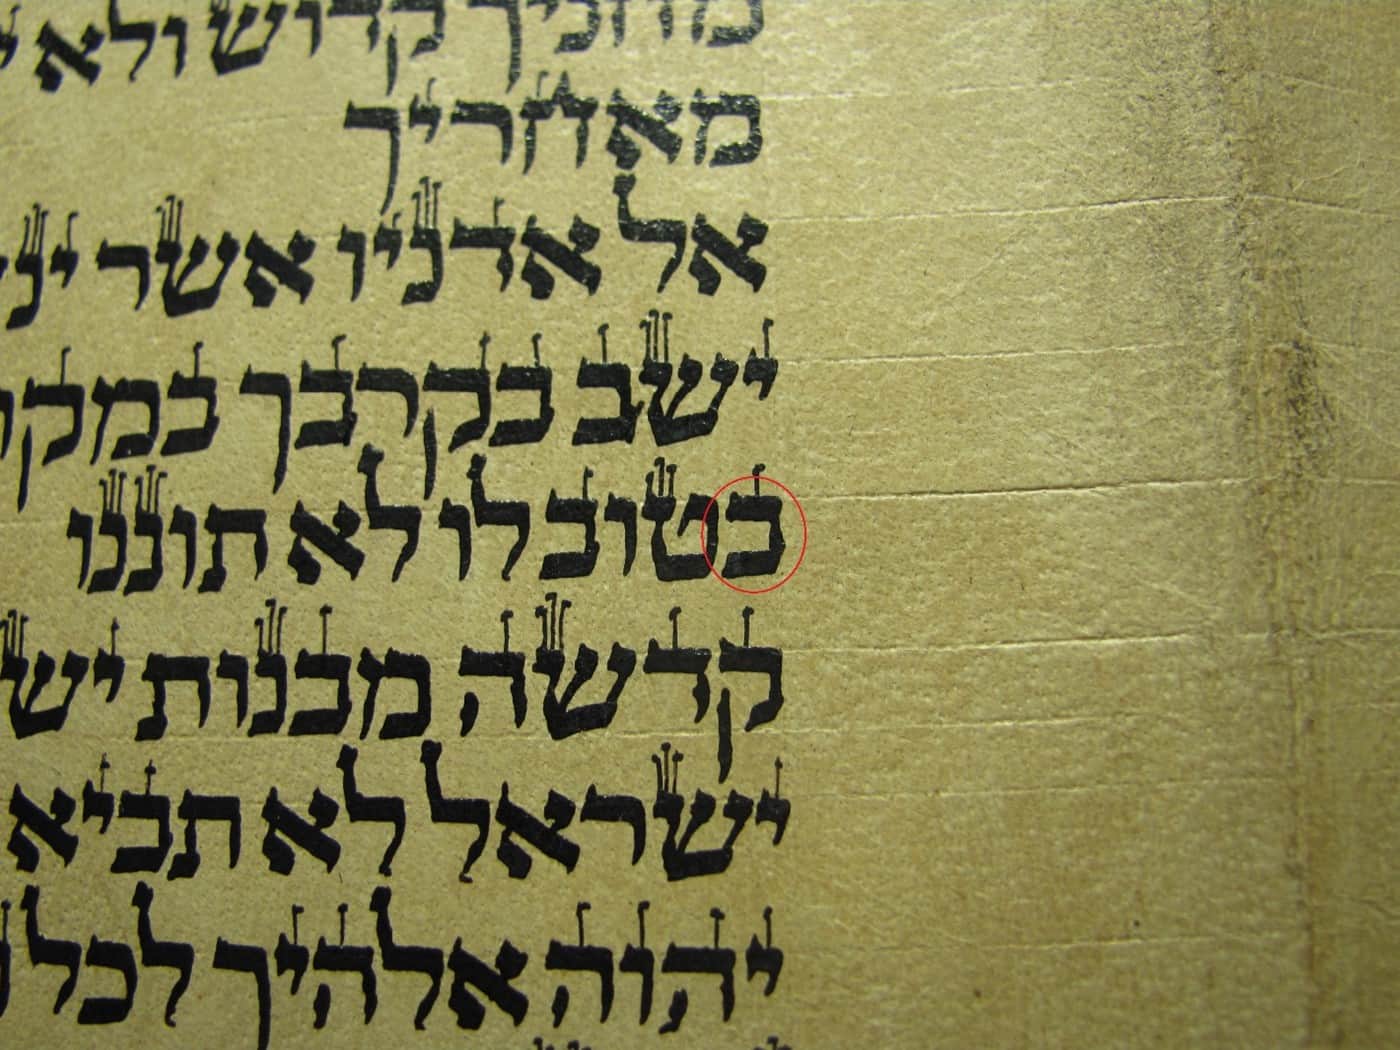 מחניך קדוש ולא י
מאחריך
אל אדניו אשר ינ
ישב בקרבך במקו
בטוב לו לא תוננו
קדשה מבנות יש
ישראל לא תביא
יהוה אלהיך לכל